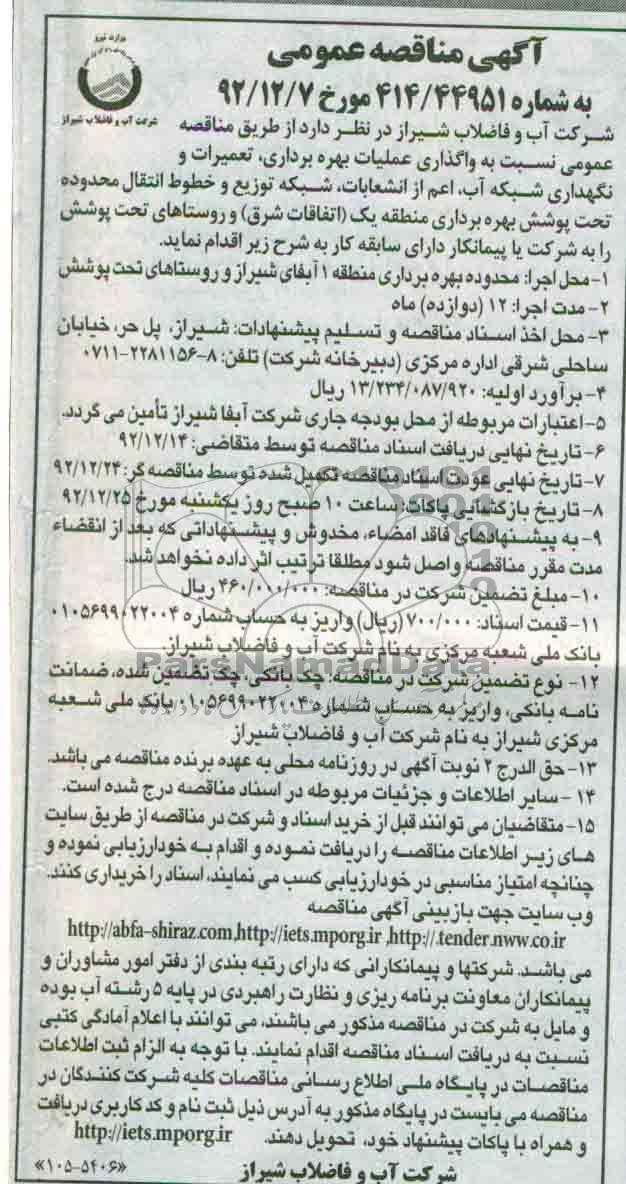 وزارت نیرو
شرکت آب و فاضلاب شیراز
آگهی مناقصه عمومی
به شماره ۴۱۴/۴۴۹۵۱ مورخ ۹۲/۱۲/۷
شرکت آب و فاضلاب شیراز در نظر دارد از طریق مناقصه
عمومی نسبت به واگذاری عملیات بهره برداری، تعمیرات و
نگهداری شبکه آب، اعم از انشعابات، شبکه توزیع و خطوط انتقال محدوده
تحت پوشش بهره برداری منطقه یک (اتفاقات شرق) و روستاهای تحت پوشش
را به شرکت یا پیمانکار دارای سابقه کار به شرح زیر اقدام نماید.
۱- محل اجرا: محدوده بهره برداری منطقه ۱ آبفای شیراز و روستاهای تحت پوشش
۲- مدت اجرا: ۱۲ (دوازده) ماه
۳- محل اخذ اسناد مناقصه و تسلیم پیشنهادات: شیراز، پل حر، خیابان
ساحلی شرقی اداره مرکزی (دبیرخانه شرکت) تلفن: ۸-۲۲۸۱۱۵۶-۰۷۱۱
۴- برآورد اولیه: ۱۳/۲۳۴/۰۸۷/۹۲۰ ریال
۵- اعتبارات مربوطه از محل بودجه جاری شرکت آبفا شیراز تأمین می گردد.
۶- تاریخ نهایی دریافت اسناد مناقصه توسط متقاضی: ۹۲/۱۲/۱۴
۷- تاریخ نهایی عودت اسناد مناقصه تکمیل شده توسط مناقصه گر: ۹۲/۱۲/۲۴
۸- تاریخ بازگشایی پاکات: ساعت ۱۰ صبح روز یکشنبه مورخ ۹۲/۱۲/۲۵
۹- به پیشنهادهای فاقد امضاء، مخدوش و پیشنهاداتی که بعد از انقضاء
مدت مقرر مناقصه واصل شود مطلقا ترتیب اثر داده نخواهد شد.
۱۰- مبلغ تضمین شرکت در مناقصه: ۴۶۰/۰۰۰/۰۰۰ ریال
۱۱- قیمت اسناد: ۷۰۰/۰۰۰ (ریال) واریز به حساب شماره ۰۱۰۵۶۹۹۰۲۲۰۰۴
بانک ملی شعبه مرکزی به نام شرکت آب و فاضلاب شیراز.
ParsNamadData
۱۲- نوع تضمین شرکت در مناقصه: چک بانکی، چک تضمین شده، ضمانت
نامه بانکی، واریز به حساب شماره ۰۱۰۵۶۹۹۰۲۲۰۰۴ بانک ملی شعبه
مرکزی شیراز به نام شرکت آب و فاضلاب شیراز
۱۳- حق الدرج ۲ نوبت آگهی در روزنامه محلی به عهده برنده مناقصه می باشد.
۱۴- سایر اطلاعات و جزئیات مربوطه در اسناد مناقصه درج شده است.
۱۵- متقاضیان می توانند قبل از خرید اسناد و شرکت در مناقصه از طریق سایت
های زیر اطلاعات مناقصه را دریافت نموده و اقدام به خودارزیابی نموده و
چنانچه امتیاز مناسبی در خودارزیابی کسب می نمایند، اسناد را خریداری کنند.
وب سایت جهت بازبینی آگهی مناقصه
http://abfa-shiraz.com,http://iets.mporg.ir ,http://.tender.nww.co.ir
می باشد. شرکتها و پیمانکارانی که دارای رتبه بندی از دفتر امور مشاوران و
پیمانکاران معاونت برنامه ریزی و نظارت راهبردی در پایه ۵ رشته آب بوده
و مایل به شرکت در مناقصه مذکور می باشند، می توانند با اعلام آمادگی کتبی
نسبت به دریافت اسناد مناقصه اقدام نمایند. با توجه به الزام ثبت اطلاعات
مناقصات در پایگاه ملی اطلاع رسانی مناقصات کلیه شرکت کنندگان در
مناقصه می بایست در پایگاه مذکور به آدرس ذیل ثبت نام و کد کاربری دریافت
و همراه با پاکات پیشنهاد خود، تحویل دهند. http://iets.mporg.ir
شرکت آب و فاضلاب شیراز
«۱۰۵-۵۴۰۶»